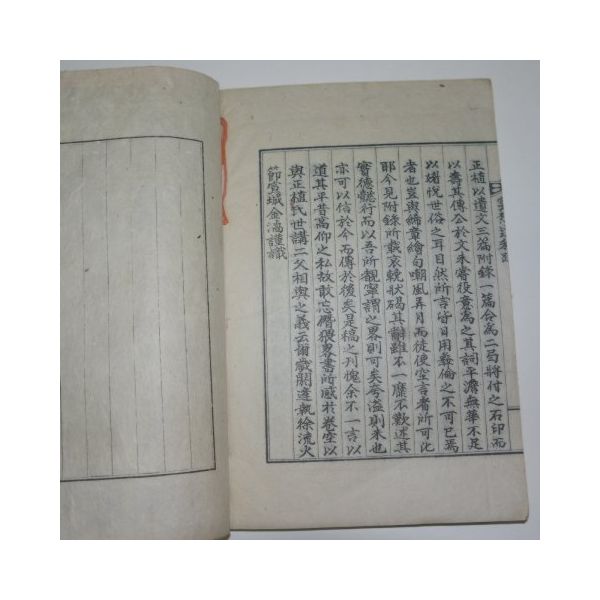 正植以遺文三篇附錄一篇合為二局將付之石印而
以壽其傳公於文未嘗役意為之其詞平澹無華不足
以媚悅世俗之耳目然所言皆日用彜倫之不可已焉
者也豈與締章繪句嘲風弄月而徒使空言者所可比
耶今見附錄所載哀輓狀碣其辭雖不一靡不歎述其
實德懿行而以吾所覩寧謂之畧則可矣夸溢則未也
亦可以信於今而傳於後矣是稿之刊愧余不一言以
道其平昔高仰之私故敢忘僭猥畧書所感於卷室以
與正植氏世講二父相與之義云爾歲閼逢執徐流火
節宣城金濤謹識